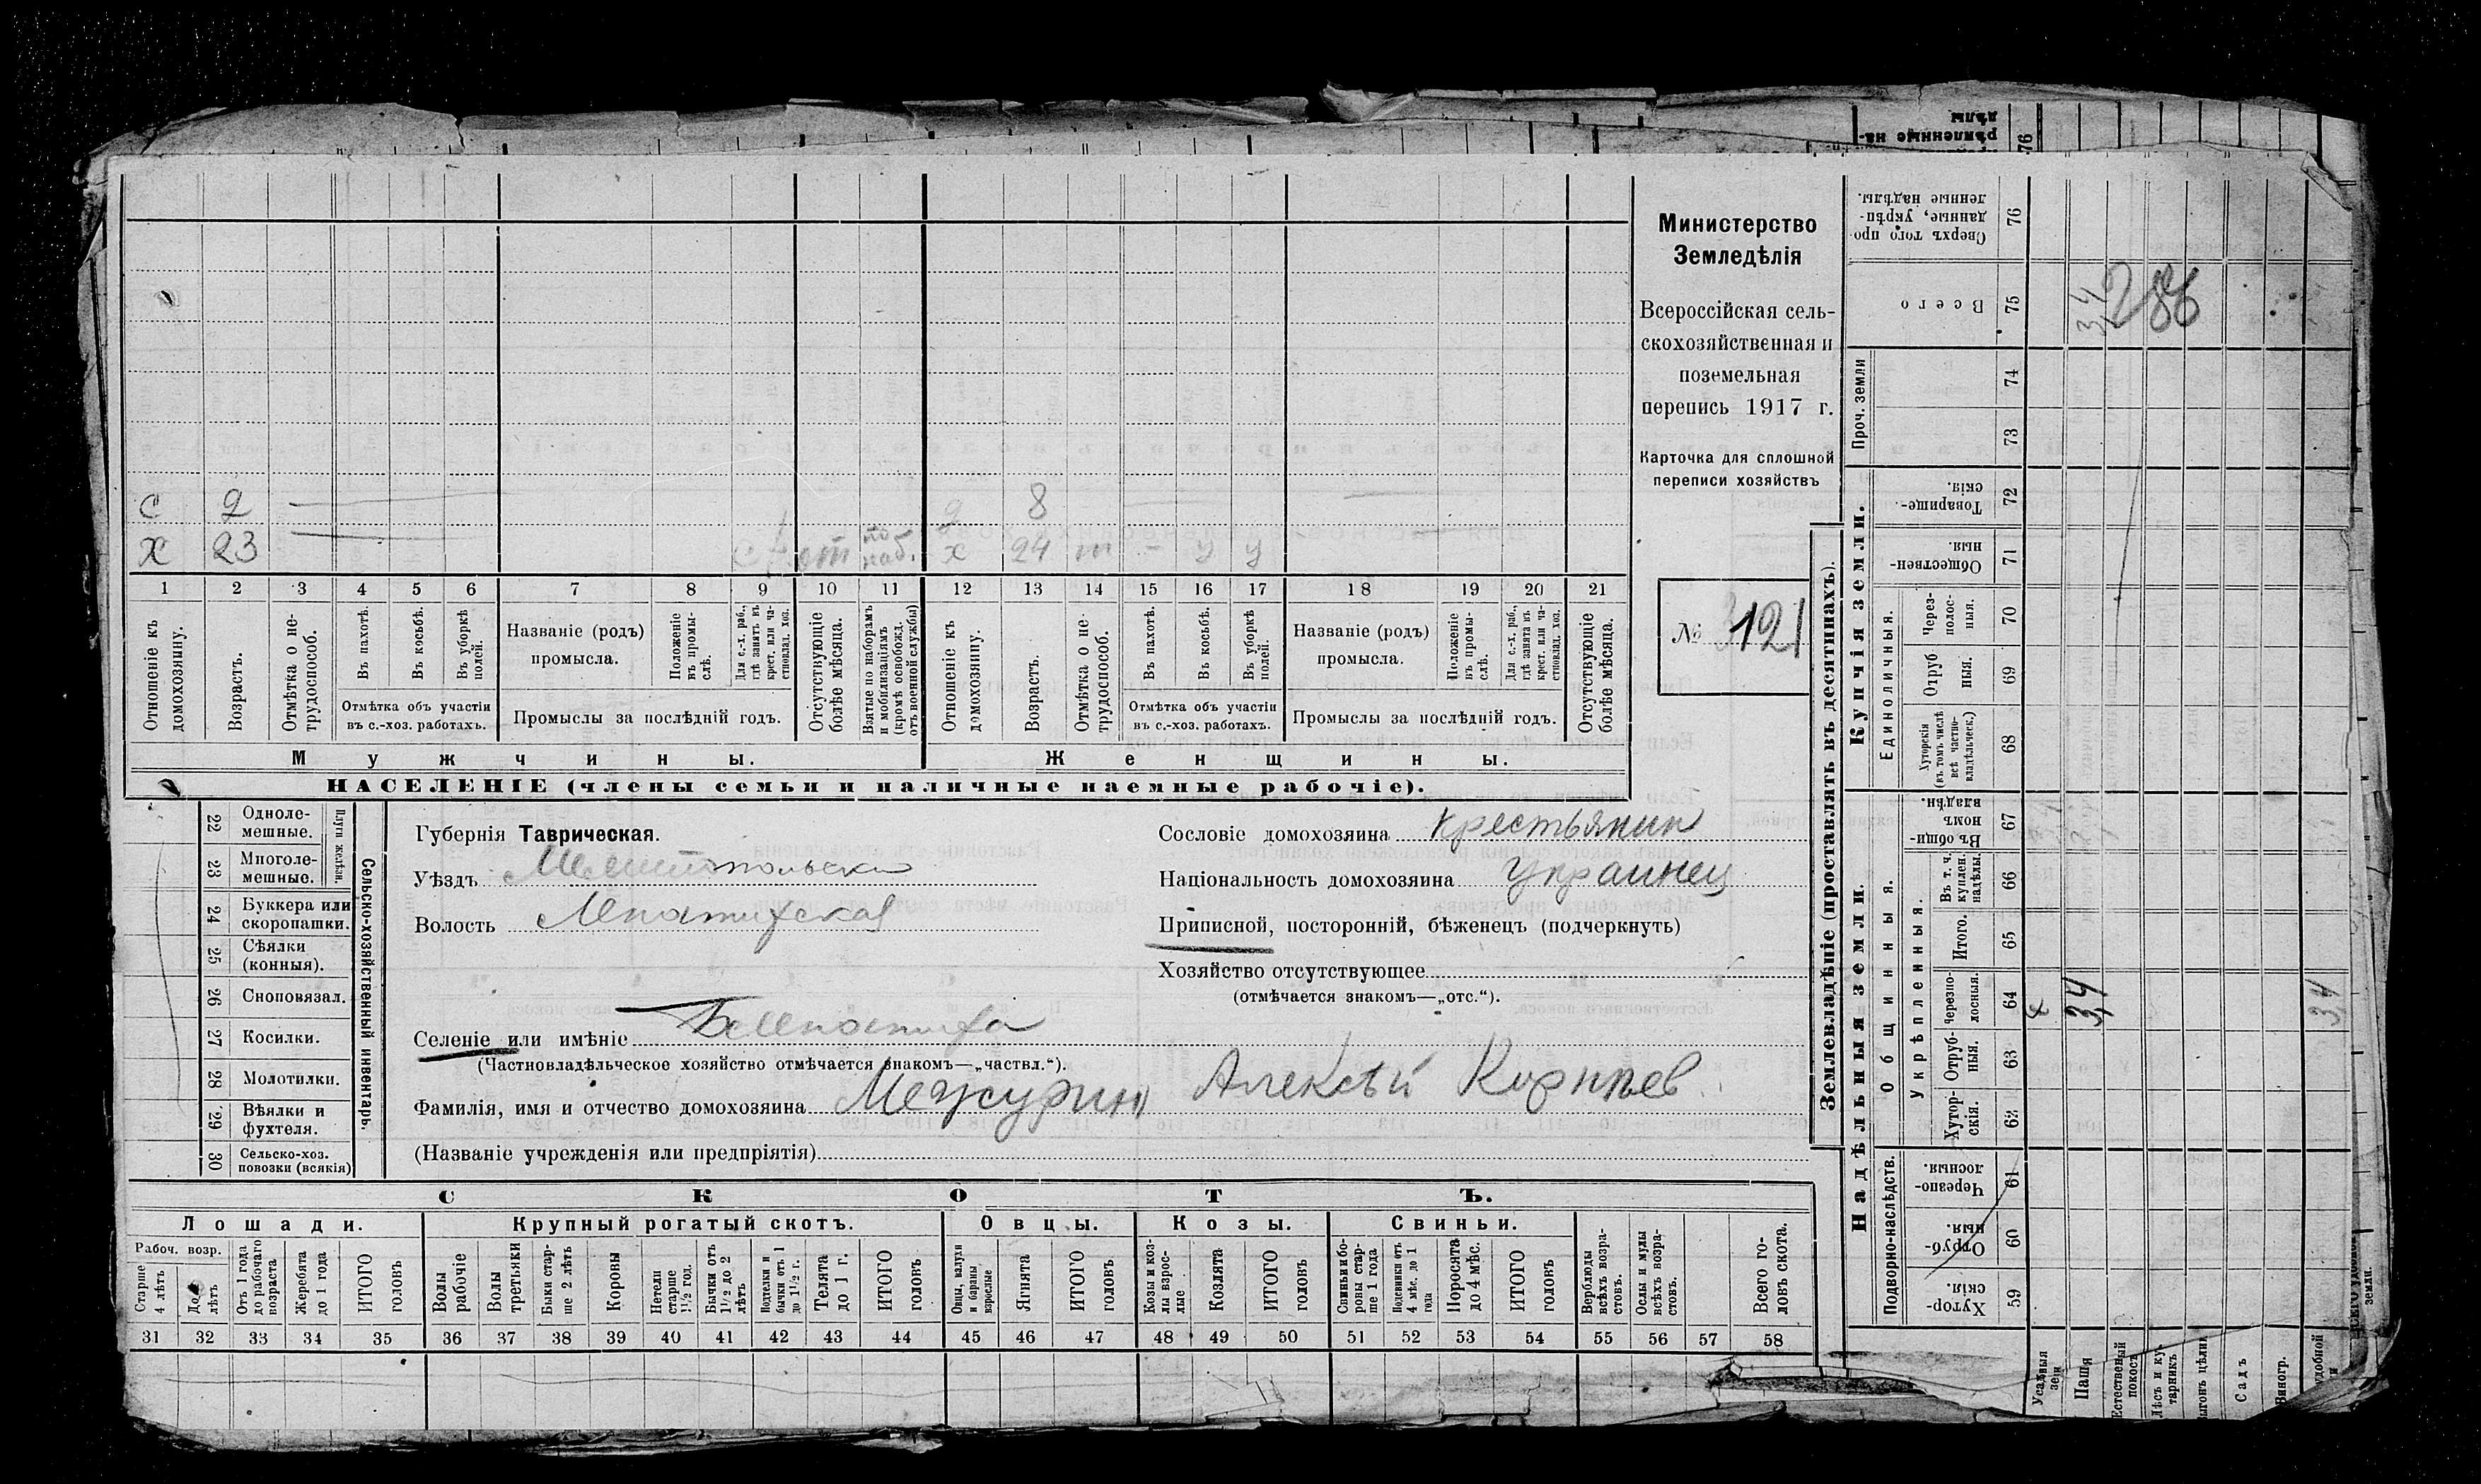 Министерство
Земледѣлія
Всероссійская сель-
скохозяйственная и
поземельная
перепись 1917 г.
Карточка для сплошной
переписи хозяйствъ
№ 121
с 2 8
х 23 от по наб. х 24 т – у у
1 2 3 4 5 6 7 8 9 10 11 12 13 14 15 16 17 18 19 20 21
Отношеніе къ домохозяину.
Возрастъ.
Отмѣтка о нетрудоспособ.
Въ пахотѣ.
Въ косьбѣ.
Въ уборкѣ полей.
Отмѣтка объ участіи
въ с.-хоз. работахъ.
Названіе (родъ)
промысла.
Положеніе въ промыслѣ.
Для с.-х. раб., гдѣ занятъ въ крест. или частновлад. хоз.
Промыслы за послѣдній годъ.
Отсутствующіе болѣе мѣсяца.
Взятые по наборамъ и мобилизаціямъ (кромѣ освобожд. отъ военной службы)
Отношеніе къ домохозяину.
Возрастъ.
Отмѣтка о нетрудоспособ.
Въ пахотѣ.
Въ косьбѣ.
Въ уборкѣ полей.
Отмѣтка объ участіи
въ с.-хоз. работахъ.
Названіе (родъ)
промысла.
Положеніе въ промыслѣ.
Для с.-х. раб., гдѣ занята въ крест. или частновлад. хоз.
Промыслы за послѣдній годъ.
Отсутствующіе болѣе мѣсяца.
Мужчины.
Женщины.
НАСЕЛЕНІЕ (члены семьи и наличные наемные рабочіе).
22 Одноле-
мешные.
23 Многоле-
мешные.
Плуги желѣзн.
24 Буккера или
скоропашки.
25 Сѣялки
(конныя).
26 Сноповязал.
27 Косилки.
28 Молотилки.
29 Вѣялки и
фухтеля.
30 Сельско-хоз.
повозки (всякія)
Сельско-хозяйственный инвентарь.
Губернія Таврическая.
Уѣздъ Мелитопольски
Волость Лепатихская
Селеніе или имѣніе Б Лепатиха
(Частновладѣльческое хозяйство отмѣчается знакомъ—„частвл.“).
Сословіе домохозяина крестьянин
Національность домохозяина Украинец
Приписной, посторонній, бѣженецъ (подчеркнуть)
Хозяйство отсутствующее
(отмѣчается знакомъ—„отс.“).
Фамилія, имя и отчество домохозяина Межурин Алексѣй Корнѣев
(Названіе учрежденія или предпріятія)
СКОТЪ.
Лошади.
Крупный рогатый скотъ.
Овцы.
Козы.
Свиньи.
Рабоч. возр.
Старше 4 лѣтъ
До 4 лѣтъ
Отъ 1 года до рабочаго возраста
Жеребята до 1 года
ИТОГО головъ
Волы рабочіе
Волы третьяки
Быки старше 2 лѣтъ
Коровы
Нетели старше 1½ год.
Бычки отъ 1½ до 2 лѣтъ
Подтелки и бычки отъ 1 до 1½ г.
Телята до 1 г.
ИТОГО головъ
Овцы, валухи и бараны взрослые
Ягнята
ИТОГО головъ
Козы и козлы взрослые
Козлята
ИТОГО головъ
Свиньи и боровы старше 1 года
Подсвинки отъ 4 мѣс. до 1 года
Поросята до 4 мѣс.
ИТОГО головъ
Верблюды всѣхъ возрастовъ.
Ослы и мулы всѣхъ возрастовъ.
Всего головъ скота.
31 32 33 34 35 36 37 38 39 40 41 42 43 44 45 46 47 48 49 50 51 52 53 54 55 56 57 58
Землевладѣніе (проставлять въ десятинахъ).
Купчія земли.
Надѣльныя земли.
Сверхъ того проданные, укрѣпленные надѣлы. 76
Всего 75 3,4 286
Проч. земли 74
73
Товарищескія. 72
Общественныя. 71
Единоличныя.
Черезполосныя. 70
Отрубныя. 69
Хуторскія (въ томъ числѣ всѣ частновладѣльческ.) 68
Общинныя.
Въ общинномъ владѣн. 67
Укрѣпленныя.
Въ т. ч. куплен. надѣлы. 66
Итого. 65
Черезполосныя. 64 3,4 3,4
Отрубныя. 63
Хуторскія. 62
Подворно-наслѣдств.
Черезполосныя. 61
Отрубныя. 60
Хуторскія. 59
Пашня
Естественный покосъ
Лѣсъ и кустарникъ
Садъ
Виногр.